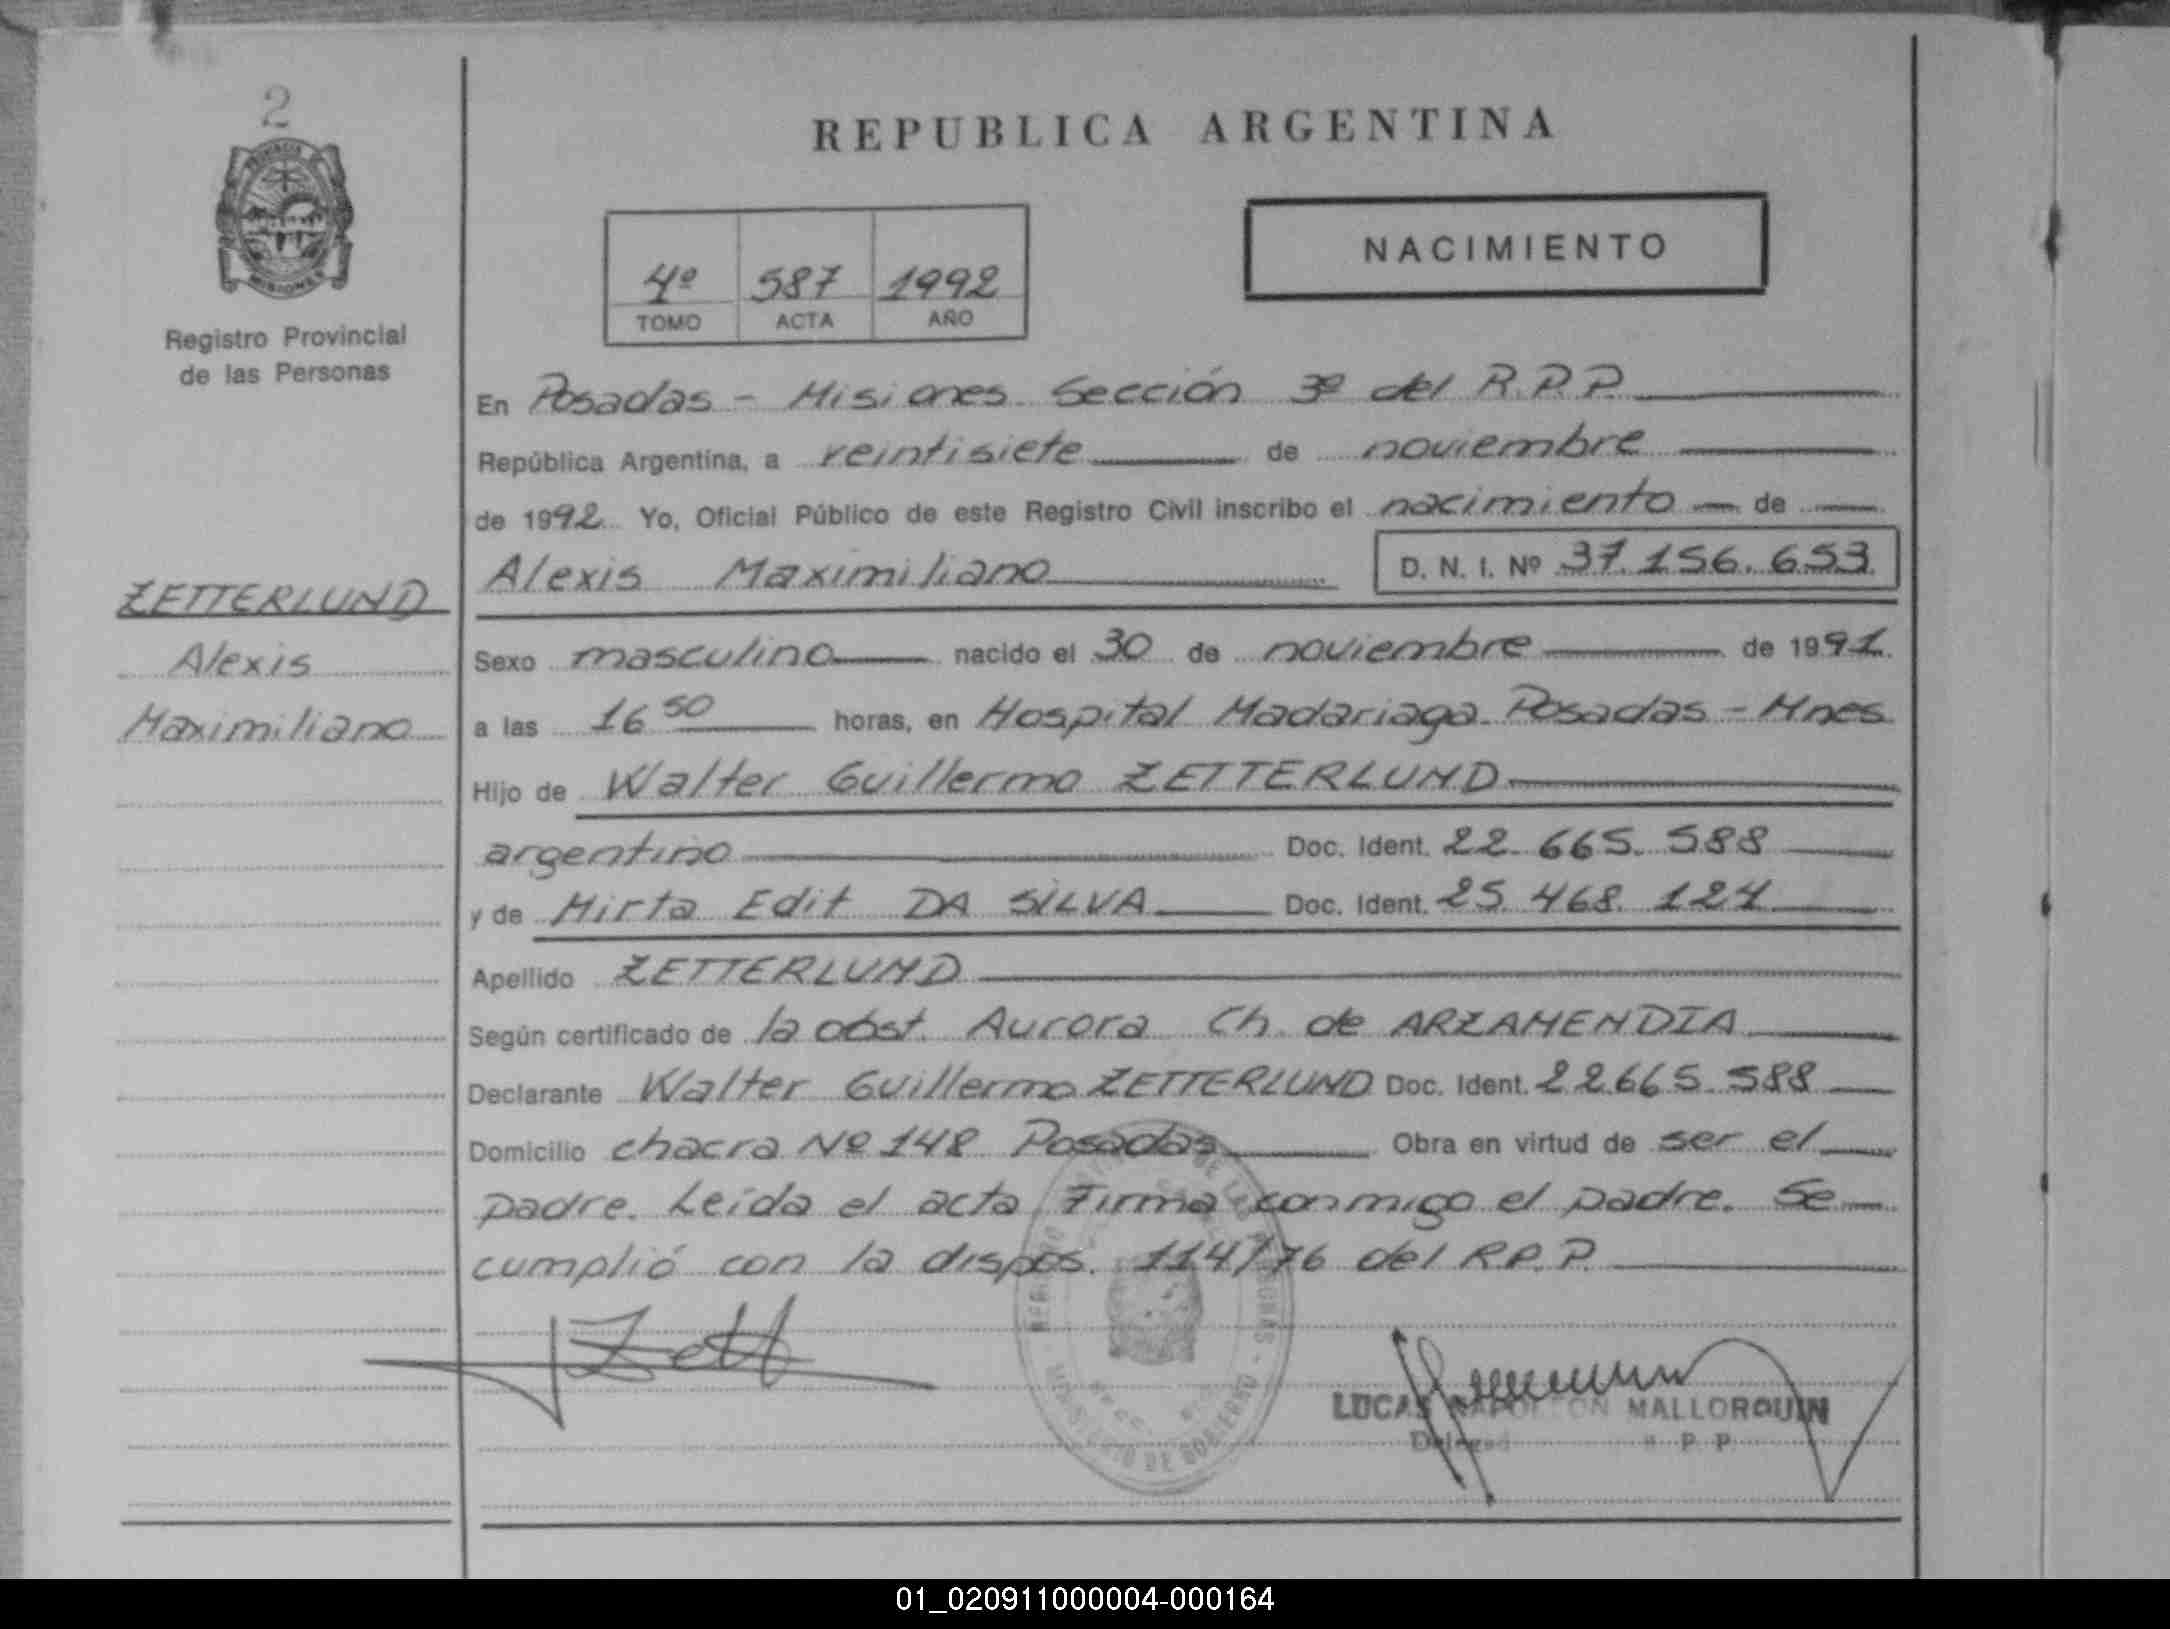 2
PROVINCIA DE
MISIONES
Registro Provincial
de las Personas
REPUBLICA ARGENTINA
4º 587 1992
TOMO ACTA AÑO
NACIMIENTO
En Posadas - Misiones Sección 3º del R.P.P.
República Argentina, a veintisiete de noviembre
de 1992 Yo, Oficial Público de este Registro Civil inscribo el nacimiento de
Alexis Maximiliano D. N. I. Nº 37.156.653
ZETTERLUND
Alexis
Maximiliano
Sexo masculino nacido el 30 de noviembre de 1991.
a las 16 50 horas, en Hospital Madariaga Posadas - Mnes
Hijo de Walter Guillermo ZETTERLUND
argentino Doc. Ident. 22.665.588
y de Mirta Edit DA SILVA Doc. Ident. 25.468.124
Apellido ZETTERLUND
Según certificado de la obst. Aurora Ch. de ARZAMENDIA
Declarante Walter Guillermo ZETTERLUND Doc. Ident. 22.665.588
Domicilio chacra Nº 148 Posadas Obra en virtud de ser el
padre. Leída el acta Firma conmigo el padre. Se
cumplió con la dispos. 114/76 del R.P.P.
Zett
LUCAS NAPOLEON MALLORQUIN
MINISTERIO DE GOBIERNO
01_020911000004-000164